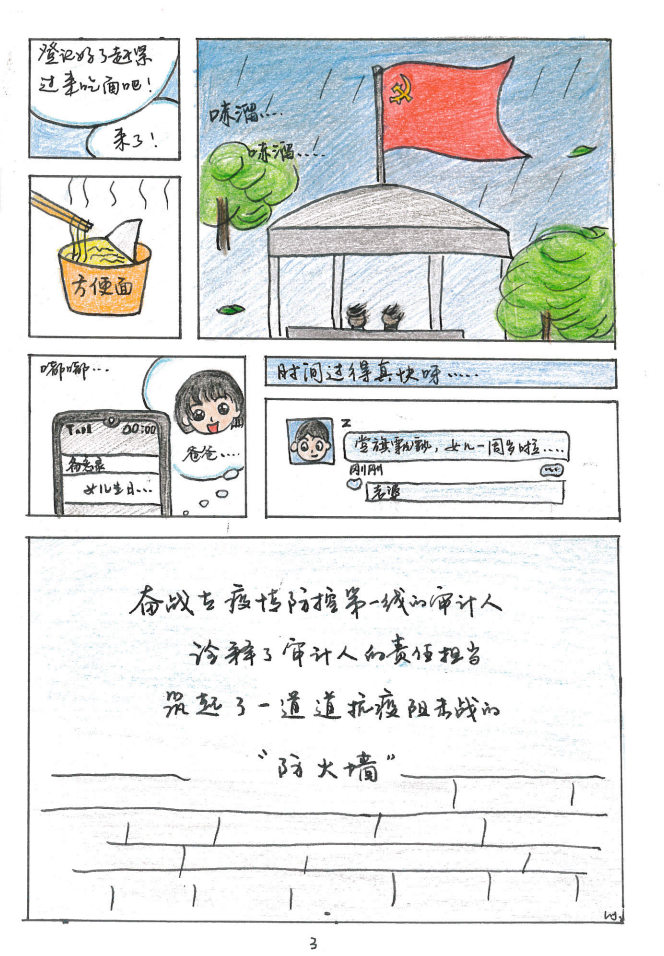 登记好了赶紧
过来吃面吧！
来了！
咪溜....
咪溜....
方便面
嘟嘟...
00:00
备忘录
女儿生日...
爸爸....
时间过得真快呀.....
Z
党旗飘飘，女儿一周岁啦....
刚刚
奋战在疫情防控第一线的审计人
诠释了审计人的责任担当
筑起了一道道抗疫阻击战的
“防火墙”
3